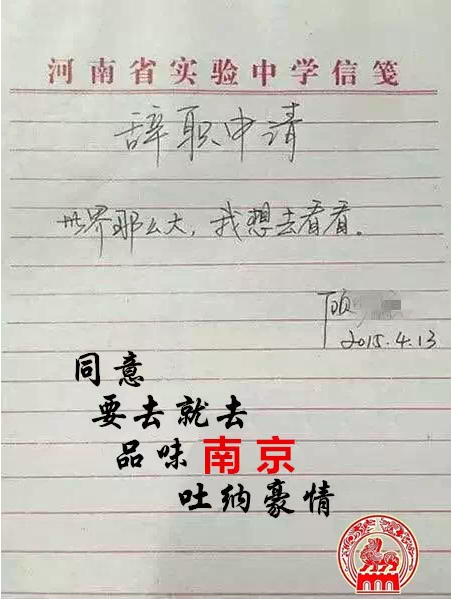 河南省实验中学信笺
辞职申请
世界那么大，我想去看看。
顾
2015.4.13
同意
要去就去
品味南京
吐纳豪情